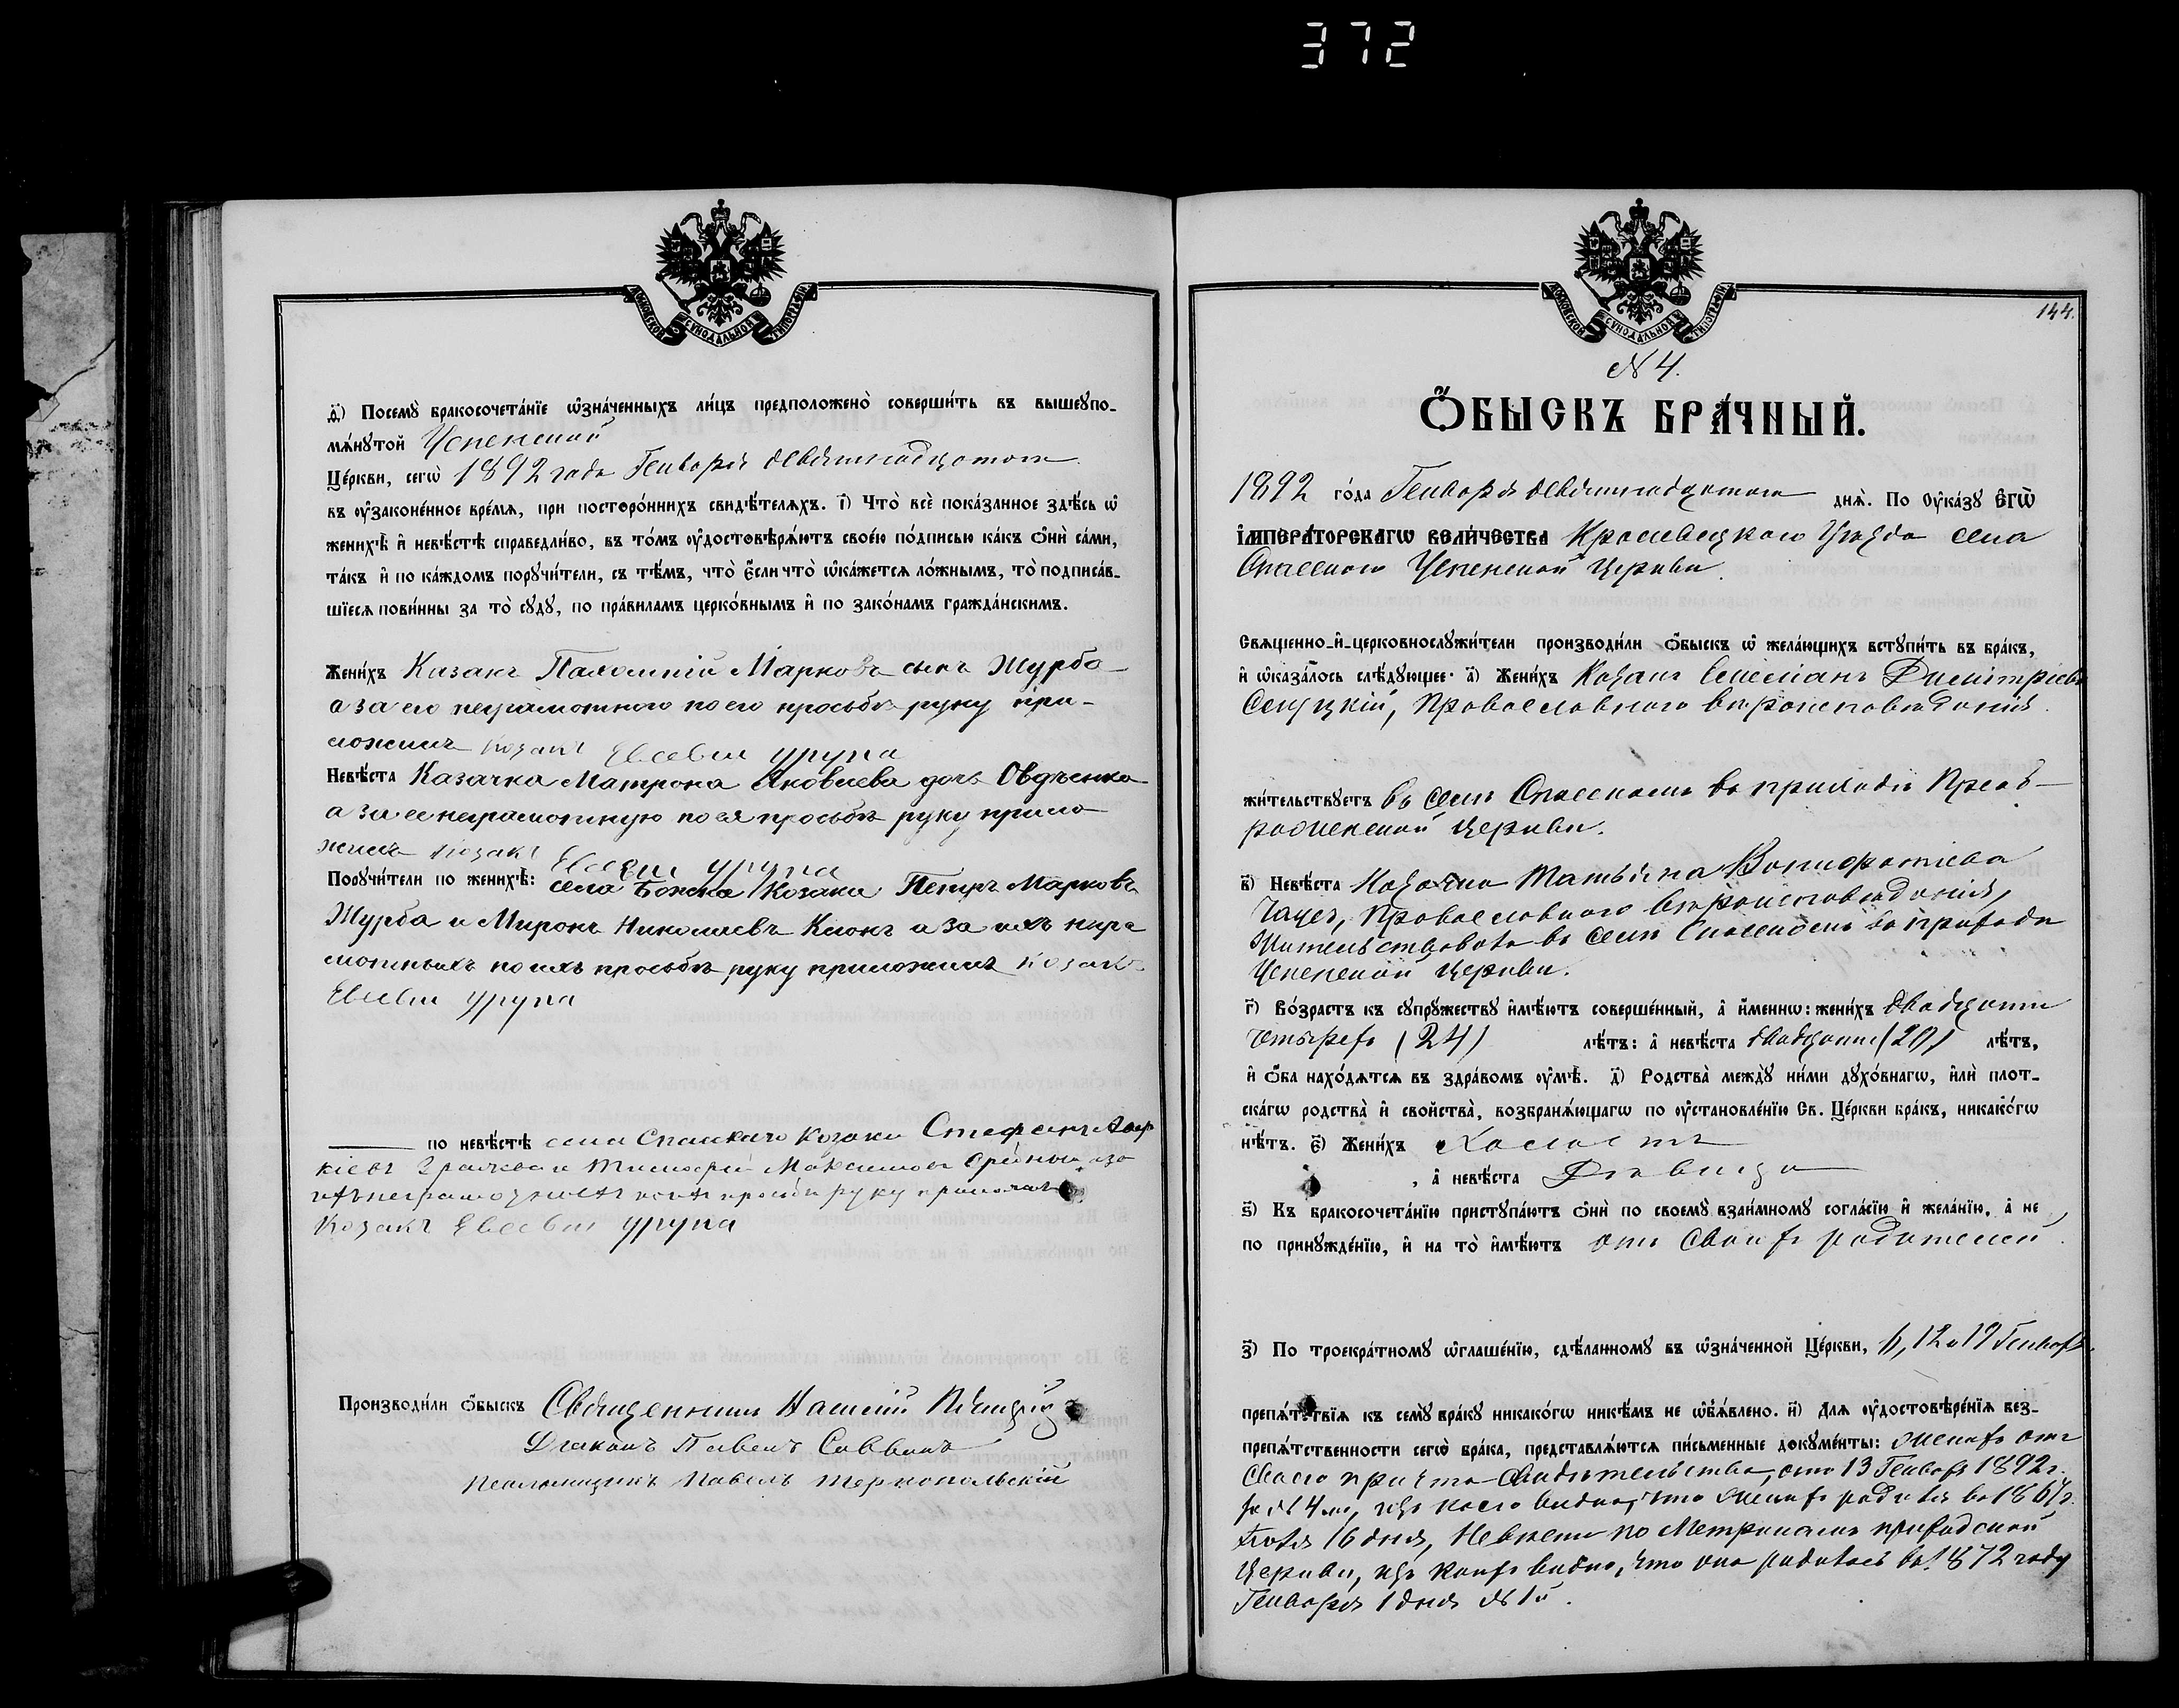 372
МОСКОВСКОЙ СѴНОДАЛЬНОЙ ТИПОГРАФІИ
ѳ҃) Посемꙋ̀ бракосочета́нїе ѡ҆зна́ченныхъ ли́цъ предположено̀ соверши́ть въ вышеꙋпо-
мѧ́нꙋтой Успенской
Це́ркви, сегѡ̀ 1892 года Генваря девятнадцатого
въ ᲂу҆зако́не́нное вре́мѧ, при посторо́ннихъ свидѣ́телѧхъ. і҃) Что̀ всѐ пока́занное здѣ́сь ѡ҆
женихѣ̀ и҆ невѣ́стѣ справедли́во, въ то́мъ ᲂу҆достовѣрѧ́ютъ свое́ю по́дписью ка́къ ѻ҆нѝ са́ми,
та́къ и҆ по ка́ждомъ порꙋчи́тели, съ тѣ́мъ, что̀ є҆́сли что̀ ѡ҆ка́жетсѧ ло́жнымъ, то̀ подписа́в-
шїесѧ пови́нны за то̀ сꙋдꙋ̀, по пра́виламъ церко́внымъ и҆ по зако́намъ гражда́нскимъ.
Жени́хъ Казакъ Марковъ сынъ Журба
а за его неграмотного по его просьбѣ руку при-
ложилъ козакъ Евсевій
Невѣ́ста Казачка Матрона Яковлева дочь Овдѣенко
а за ее неграмотную по ея просьбѣ руку прило
жилъ козакъ Евсевій
Порꙋчи́тели по женихѣ̀: села Божка Козаки Петръ Марковъ
Журба и Миронъ Николаевъ Клюкъ а за ихъ негра
мотныхъ по ихъ просьбѣ руку приложилъ козакъ
Евсевій
по невѣ́стѣ села Спаского Козаки Стефанъ
руку
Козакъ Евсевій
Производи́ли ѻ҆́быскъ Священникъ
Діаконъ Павелъ Саввинъ
Псаломщикъ Павелъ Тернопольскій
МОСКОВСКОЙ СѴНОДАЛЬНОЙ ТИПОГРАФІИ
144.
N 4.
Ѻ҆́БЫСКЪ БРА́ЧНЫЙ.
1892 го́да Генваря девятнадцатого днѧ̀. По ᲂу҆ка́зꙋ Є҆гѡ̀
І҆мпера́торскагѡ вели́чества Кролевецкого Уѣзда села
Спасского Успенской Церкви.
Свѧще́нно-и҆-церковнослꙋжи́тели производи́ли ѻ҆́быскъ ѡ҆ жела́ющихъ встꙋпи́ть въ бра́къ,
и҆ ѡ҆каза́лось слѣ́дꙋющее: а҃) Жени́хъ Козакъ Емеліанъ Димитріевъ
православного вѣроисповѣданія.
жи́тельствꙋетъ въ селѣ Спасскомъ въ приходѣ Преоб-
раженской Церкви.
в҃) Невѣ́ста Козачка Татьяна Вонифатіева
православного вѣроисповѣданія,
жительствовала въ селѣ Спасскомъ въ приходѣ
Успенской Церкви.
г҃) Во́зрастъ къ сꙋпрꙋ́жествꙋ и҆мѣ́ютъ соверше́нный, а҆ и҆́меннѡ: жени́хъ двадцати
четырехъ (24) лѣ́тъ: а҆ невѣ́ста двадцати (20) лѣ́тъ,
и҆ ѻ҆́ба нахо́дѧтсѧ въ здра́вомъ ᲂу҆мѣ̀. д҃) Родства̀ междꙋ̀ ни́ми дꙋхо́внагѡ, и҆лѝ плот-
ска́гѡ родства̀ и҆ сво́йства̀, возбранѧ́ющагѡ по ᲂу҆становле́нїю Св. Це́ркви бра́къ, никако́гѡ
нѣ́тъ. є҃) Жени́хъ Холостъ
, а҆ невѣ́ста Дѣвица
ѕ҃) Къ бракосочета́нїю пристꙋпа́ютъ ѻ҆нѝ по своемꙋ̀ взаи́мномꙋ согла́сїю и҆ жела́нїю, а҆ не
по принꙋжде́нїю, и҆ на то̀ и҆мѣ́ютъ отъ своихъ родителей.
з҃) По троекра́тномꙋ ѡ҆глаше́нїю, сдѣ́ланномꙋ въ ѡ҆зна́ченной Це́ркви, 6, 12 и 19 Генваря
препѧ́тствїѧ къ семꙋ̀ бра́кꙋ никако́гѡ никѣ́мъ не ѡ҆б̾ѧ́влено. и҃) Длѧ ᲂу҆достовѣре́нїѧ без-
препѧ́тственности сегѡ̀ бра́ка, представлѧ́ютсѧ пи́сьменные докꙋме́нты: женихъ отъ
своего причта свидѣтельство, отъ 13 Генваря 1892 г.
за № 4мъ, изъ коего видно, что женихъ родился въ 1867 г.
16 дня, Невѣсты по Метрикамъ приходской
Церкви, изъ коихъ видно, что она родилась въ 1872 году
Генваря 1 дня № 1й.